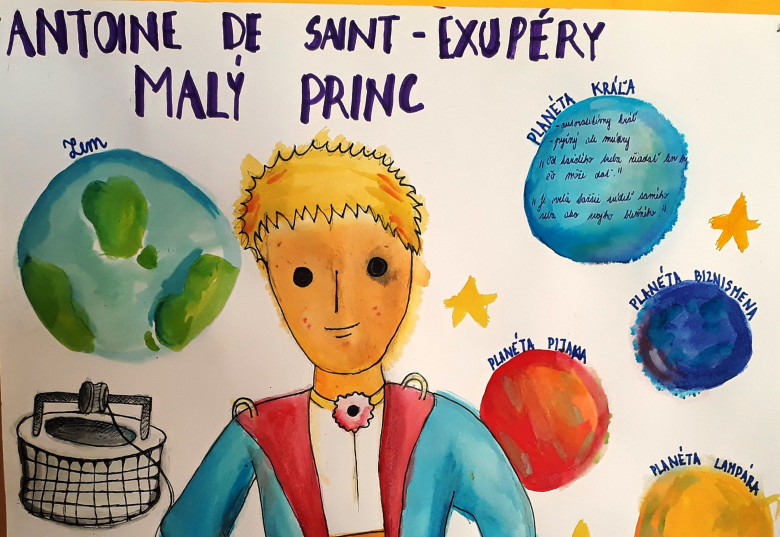 ANTOINE DE SAINT-EXUPÉRY
MALÝ PRINC
Zem
PLANÉTA KRÁĽA
- autoritatívny kráľ
- pyšný ale múdry
"Od každého treba žiadať len to
čo môže dať."
"Je veľa ťažšie súdiť samého
seba ako svojho blížneho"
PLANÉTA BIZNISMENA
PLANÉTA PIJANA
PLANÉTA LAMPÁRA